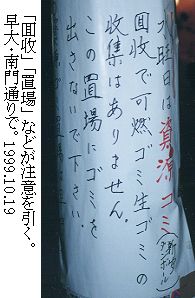 火曜日は資源ゴミ(新聞ダンボール)
囬收で可燃ゴミ生ゴミの
收集はありません。
この置場にゴミを
出さないで下さい。
「囬收」「置場」などが注意を引く。
早大・南門通りで。1999.10.19